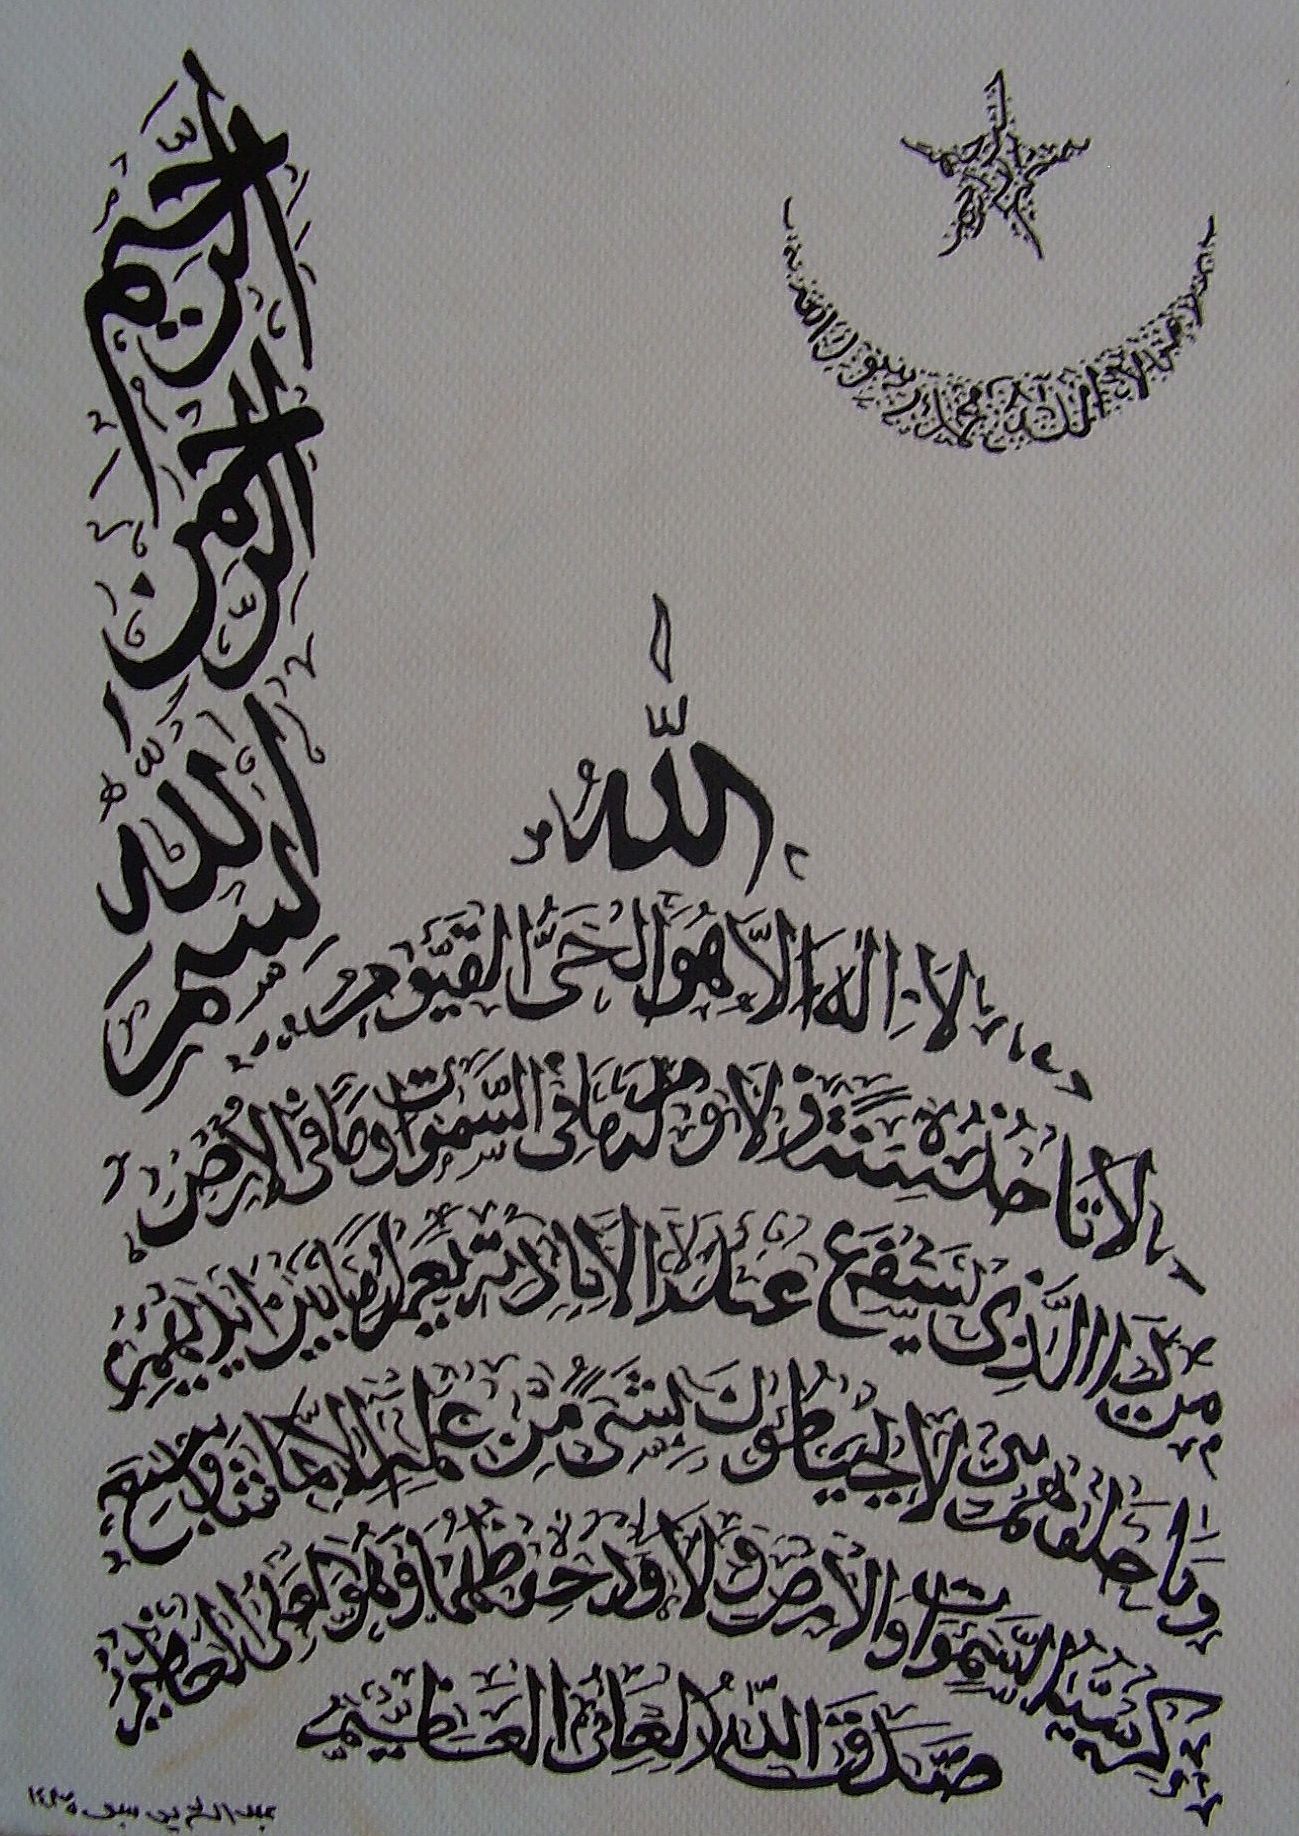 بِسْمِ اللّٰهِ الرَّحْمٰنِ الرَّحِيمِ
لا اله الا الله محمد رسول الله
اللّٰهُ
لَا اِلٰهَ اِلَّا هُوَ الْحَىُّ الْقَيُّومُ
لَا تَأْخُذُهُ سِنَةٌ وَلَا نَوْمٌ لَهُ مَا فِى السَّمٰوَاتِ وَمَا فِى الْاَرْضِ
مَنْ ذَا الَّذِى يَشْفَعُ عِنْدَهُ اِلَّا بِاِذْنِهِ يَعْلَمُ مَا بَيْنَ اَيْدِيهِمْ
وَمَا خَلْفَهُمْ لَا يُحِيطُونَ بِشَىْءٍ مِنْ عِلْمِهِ اِلَّا بِمَا شَاءَ وَسِعَ
كُرْسِيُّهُ السَّمٰوَاتِ وَالْاَرْضَ وَلَا يَؤُدُهُ حِفْظُهُمَا وَهُوَ الْعَلِىُّ الْعَظِيمُ
صَدَقَ اللّٰهُ الْعَلِىُّ الْعَظِيمُ